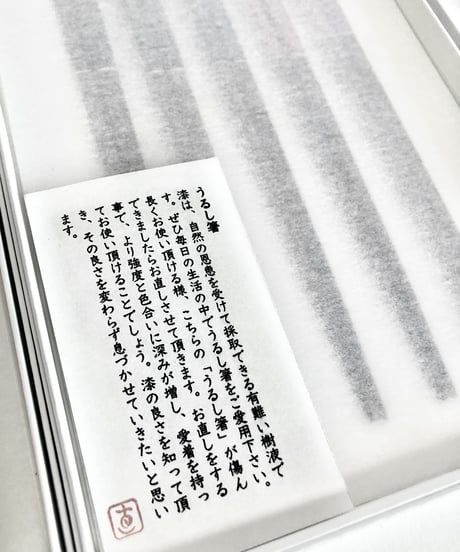 うるし箸
漆は、自然の恩恵を受けて採取できる有難い樹液で
す。ぜひ毎日の生活の中でうるし箸をご愛用下さい。
長くお使い頂ける様、こちらの「うるし箸」が傷ん
できましたらお直しさせて頂きます。お直しをする
事で、より強度と色合いに深みが増し、愛着を持っ
てお使い頂けることでしょう。漆の良さを知って頂
き、その良さを変わらず息づかせていきたいと思い
ます。